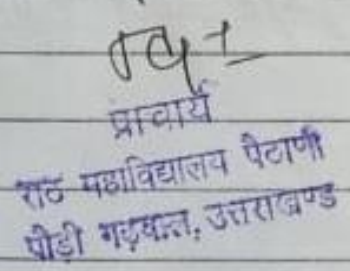 प्राचार्य
राठ महाविद्यालय पैठाणी
पौड़ी गढ़वाल, उत्तराखण्ड